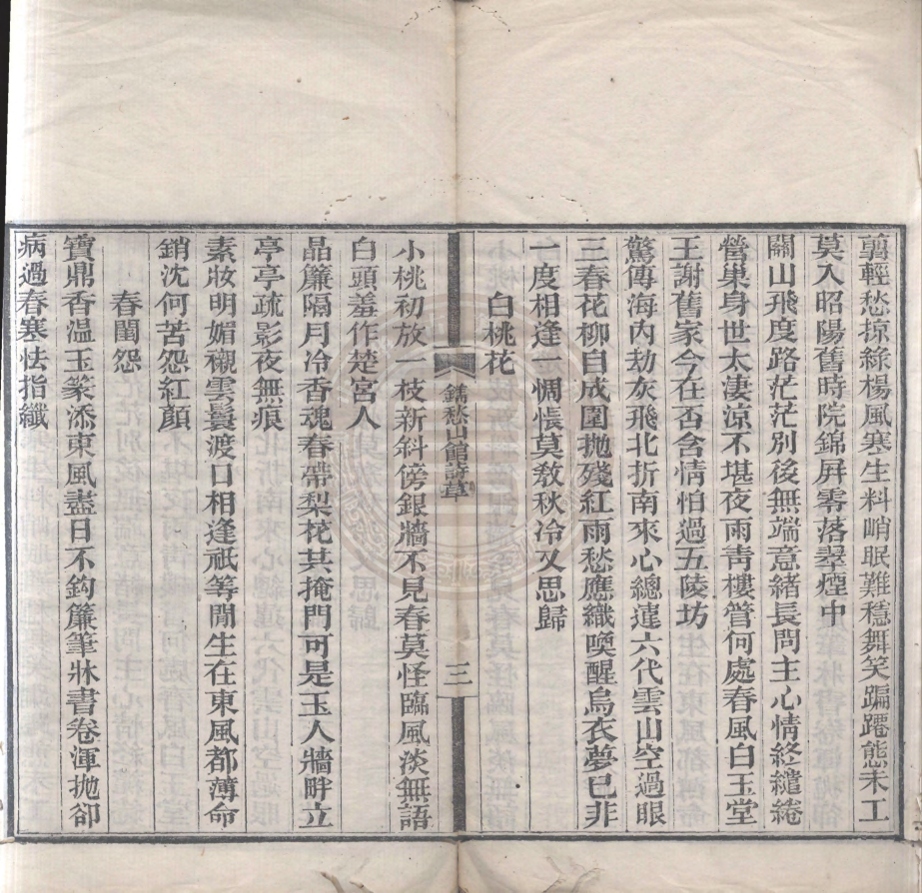 翦輕愁掠綠楊風寒生料峭眠難穩舞笑蹁蹮態未工
莫入昭陽舊時院錦屏零落翠煙中
關山飛度路茫茫別後無端意緒長問主心情終繾綣
營巢身世太淒涼不堪夜雨靑樓管何處春風白玉堂
王謝舊家今在否含情怕過五陵坊
驚傳海內劫灰飛北折南來心總違六代雲山空過眼
三春花柳自成圍拋殘紅雨愁應織喚醒烏衣夢已非
一度相逢一惆悵莫敎秋冷又思歸
白桃花
鐫愁山館詩草
三
小桃初放一枝新斜傍銀牆不見春莫怪臨風淡無語
白頭羞作楚宮人
晶簾隔月冷香魂春帶梨花共掩門可是玉人牆畔立
亭亭疏影夜無痕
素妝明媚襯雲鬟渡口相逢祇等閒生在東風都薄命
銷沈何苦怨紅顏
春閨怨
寶鼎香溫玉篆添東風盡日不鈎簾筆牀書卷渾拋卻
病過春寒怯指纖